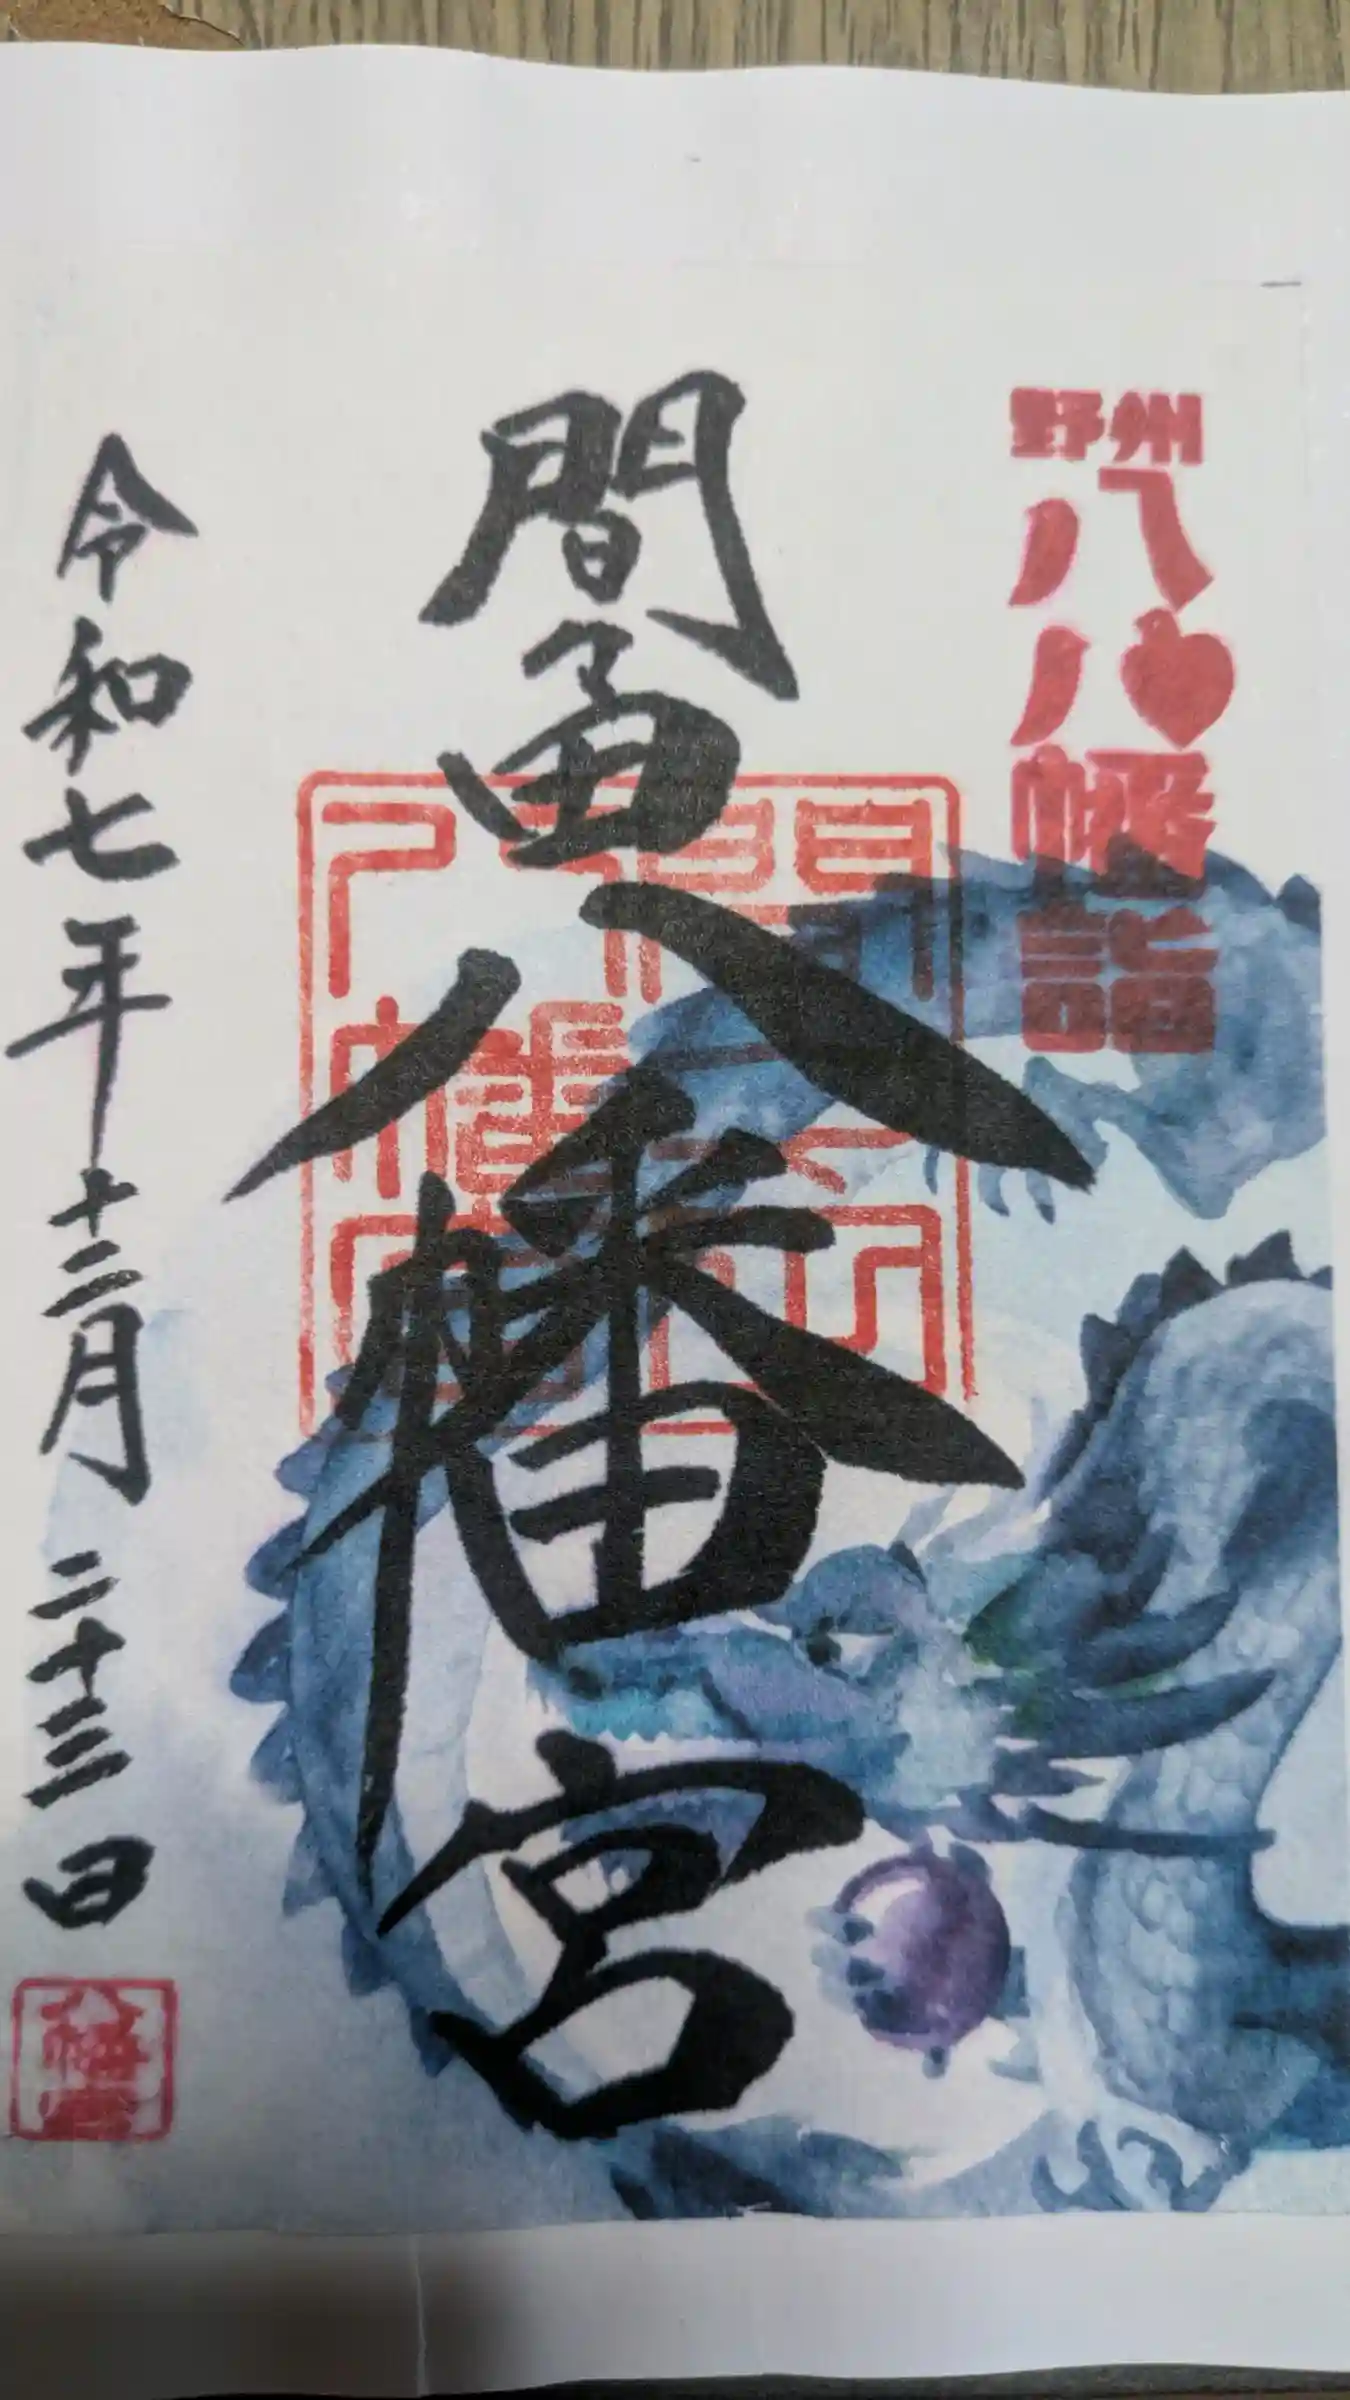 野州八八幡詣
間々田八幡宮
令和七年十二月二十三日
八幡宮